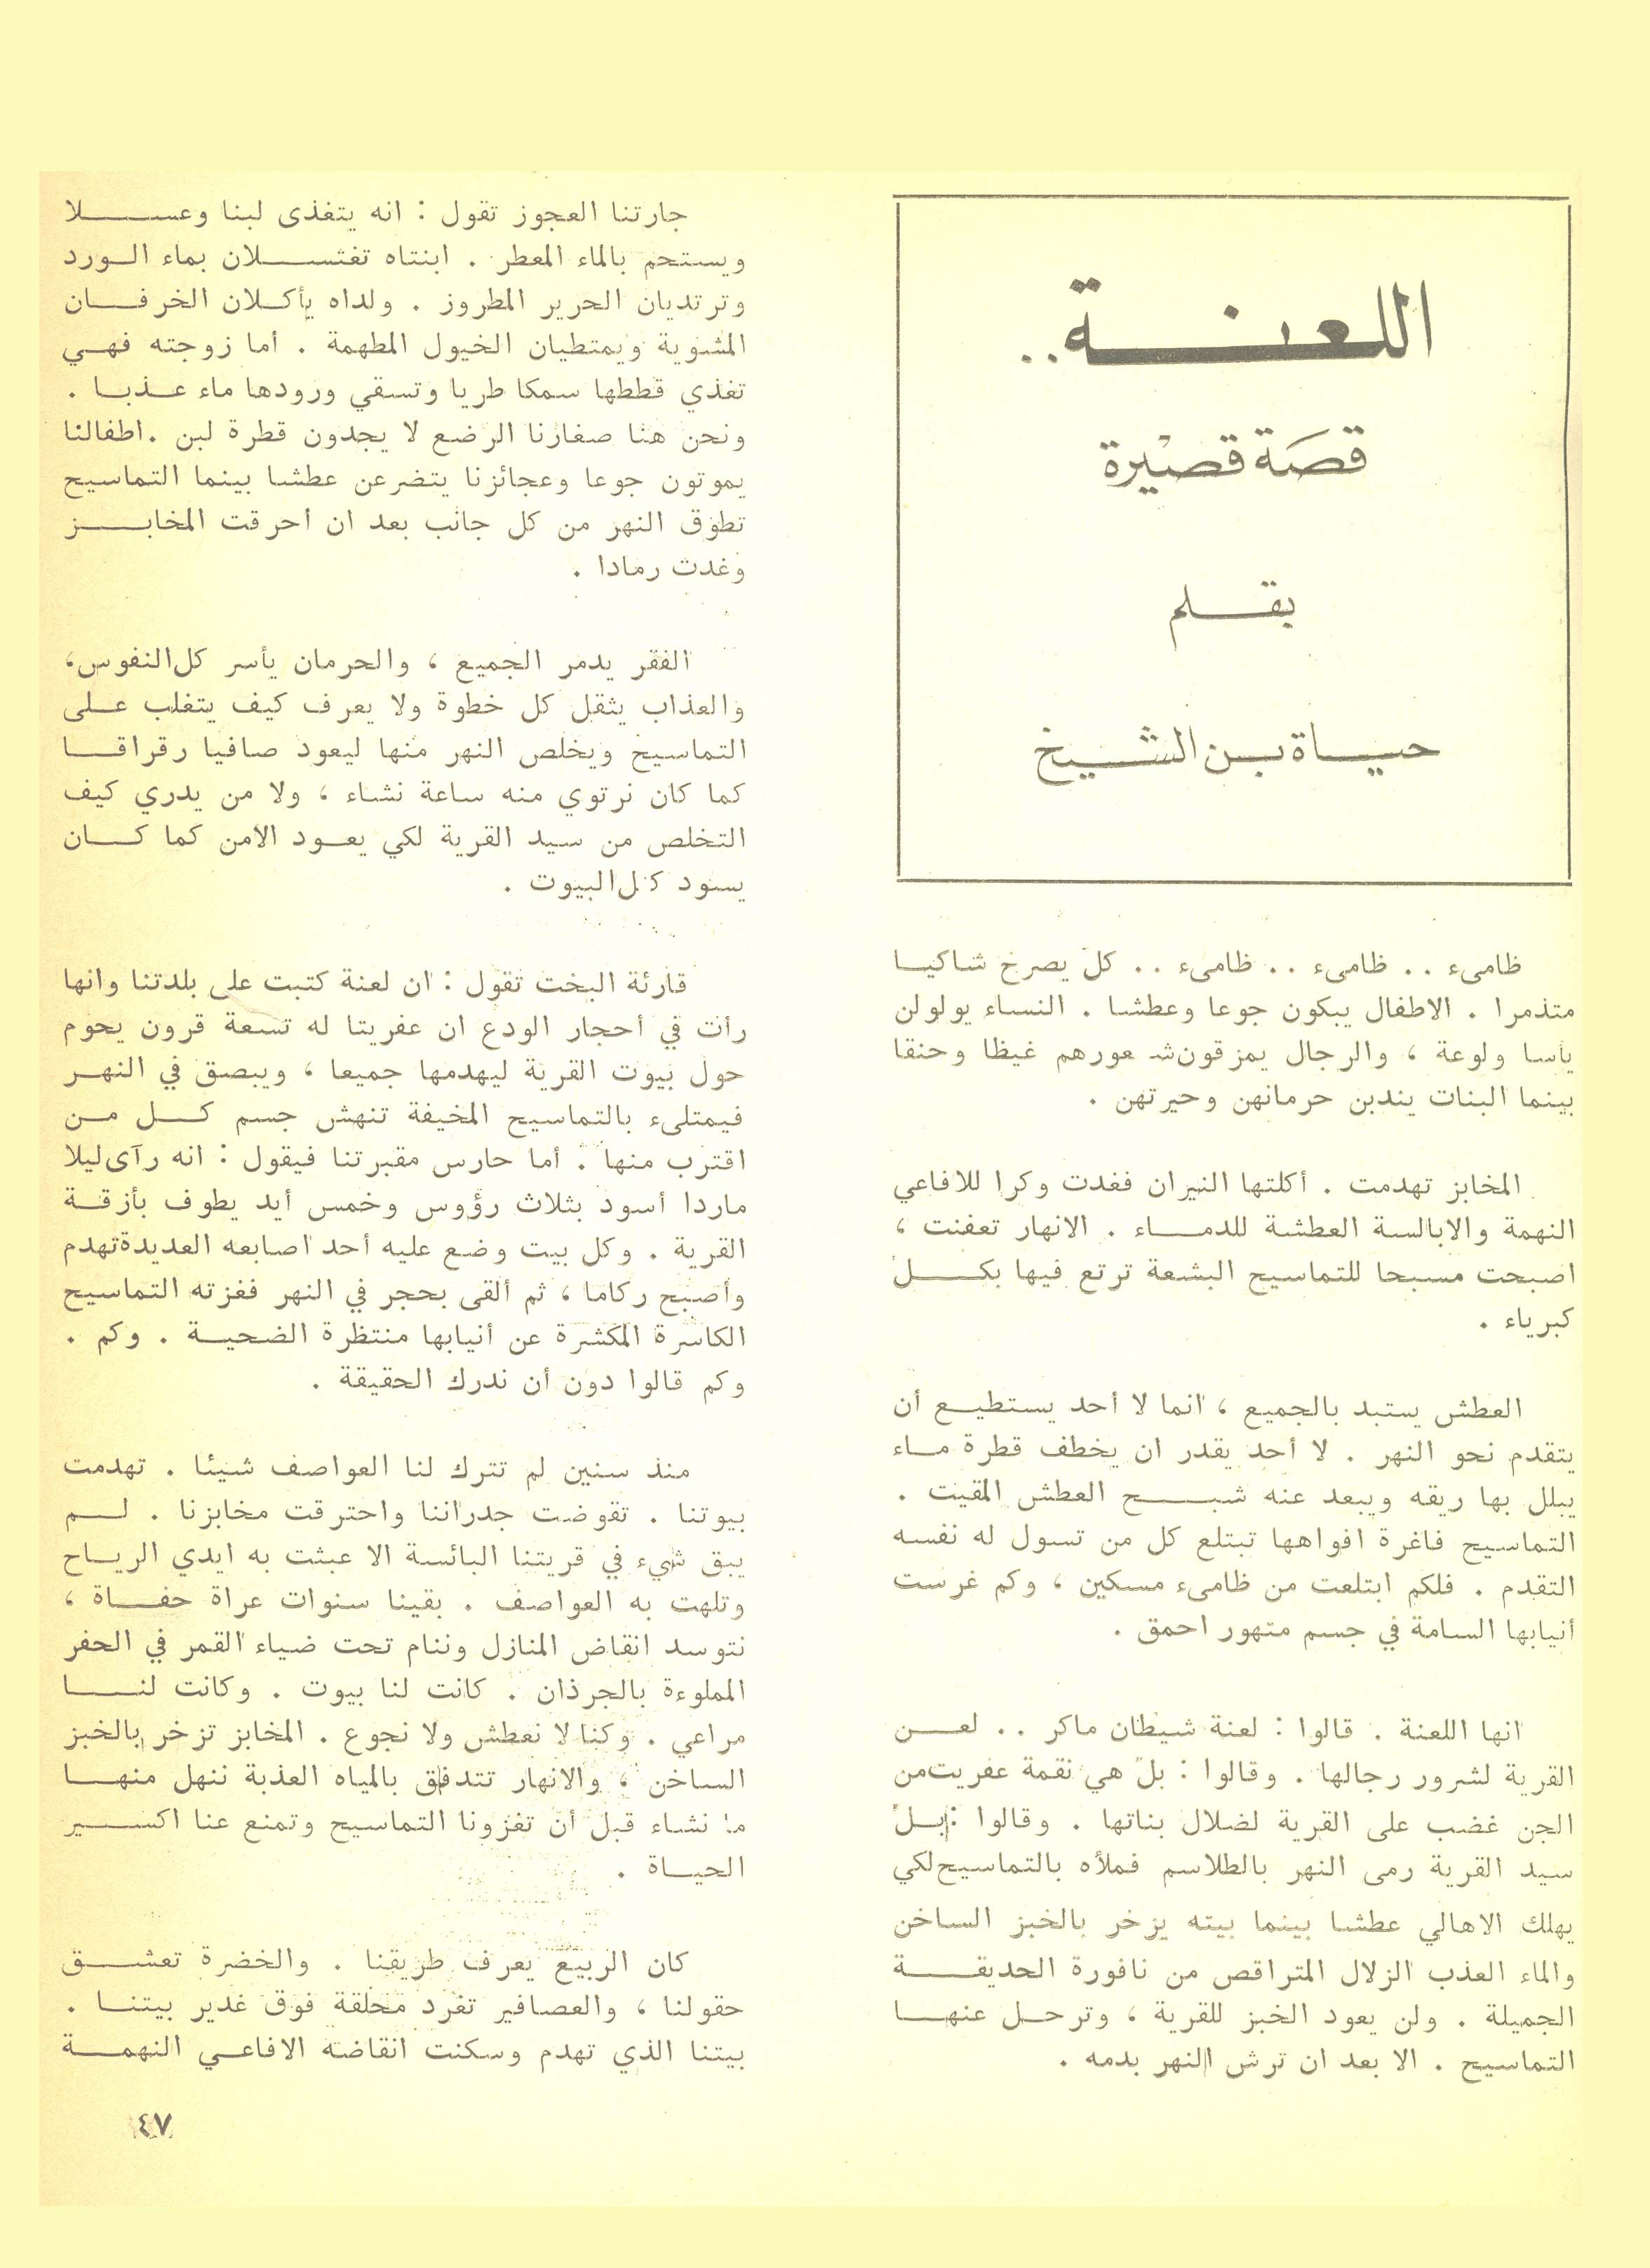 اللعنة ..
قصة قصيرة
بقلم
حياة بن الشيخ
ظامىء .. ظامىء .. ظامىء .. كل يصرخ شاكيا
متذمرا . الاطفال يبكون جوعا وعطشا . النساء يولولن
يأسا ولوعة ، والرجال يمزقون شعورهم غيظا وحنقا
بينما البنات يندبن حرمانهن وحيرتهن .
المخابز تهدمت . أكلتها النيران فغدت وكرا للافاعي
النهمة والابالسة العطشة للدماء . الانهار تعفنت ،
اصبحت مسبحا للتماسيح البشعة ترتع فيها بكل
كبرياء .
العطش يستبد بالجميع ، انما لا أحد يستطيع أن
يتقدم نحو النهر . لا أحد يقدر ان يخطف قطرة ماء
يبلل بها ريقه ويبعد عنه شبح العطش المقيت .
التماسيح فاغرة افواهها تبتلع كل من تسول له نفسه
التقدم . فلكم ابتلعت من ظامىء مسكين ، وكم غرست
أنيابها السامة في جسم متهور احمق .
انها اللعنة . قالوا : لعنة شيطان ماكر .. لعن
القرية لشرور رجالها . وقالوا : بل هي نقمة عفريت من
الجن غضب على القرية لضلال بناتها . وقالوا : بل
سيد القرية رمى النهر بالطلاسم فملأه بالتماسيح لكي
يهلك الاهالي عطشا بينما بيته يزخر بالخبز الساخن
والماء العذب الزلال المتراقص من نافورة الحديقة
الجميلة . ولن يعود الخبز للقرية ، وترحل عنها
التماسيح . الا بعد ان ترش النهر بدمه .
جارتنا العجوز تقول : انه يتغذى لبنا وعسلا
ويستحم بالماء المعطر . ابنتاه تغتسلان بماء الورد
وترتديان الحرير المطروز . ولداه يأكلان الخرفان
المشوية ويمتطيان الخيول المطهمة . أما زوجته فهي
تغذي قططها سمكا طريا وتسقي ورودها ماء عذبا .
ونحن هنا صغارنا الرضع لا يجدون قطرة لبن . اطفالنا
يموتون جوعا وعجائزنا يتضرعن عطشا بينما التماسيح
تطوق النهر من كل جانب بعد ان احرقت المخابز
وغدت رمادا .
الفقر يدمر الجميع ، والحرمان يأسر كل النفوس،
والعذاب يثقل كل خطوة ولا يعرف كيف يتغلب على
التماسيح ويخلص النهر منها ليعود صافيا رقراقا
كما كان نرتوي منه ساعة نشاء ، ولا من يدري كيف
التخلص من سيد القرية لكي يعود الامن كما كان
يسود كل البيوت .
قارئة البخت تقول : ان لعنة كتبت على بلدتنا وانها
رأت في أحجار الودع ان عفريتا له تسعة قرون يحوم
حول بيوت القرية ليهدمها جميعا ، ويبصق في النهر
فيمتلىء بالتماسيح المخيفة تنهش جسم كل من
اقترب منها . أما حارس مقبرتنا فيقول : انه رآى ليلا
ماردا أسود بثلاث رؤوس وخمس أيد يطوف بأزقة
القرية . وكل بيت وضع عليه أحد اصابعه العديدة تهدم
وأصبح ركاما ، ثم ألقى بحجر في النهر فغزته التماسيح
الكاسرة المكشرة عن أنيابها منتظرة الضحية . وكم .
وكم قالوا دون أن ندرك الحقيقة .
منذ سنين لم تترك لنا العواصف شيئا . تهدمت
بيوتنا . تقوضت جدراننا واحترقت مخابزنا . لم
يبق شيء في قريتنا البائسة الا عبثت به ايدي الرياح
وتلهت به العواصف . بقينا سنوات عراة حفاة ،
نتوسد انقاض المنازل وننام تحت ضياء القمر في الحفر
المملوءة بالجرذان . كانت لنا بيوت . وكانت لنا
مراعي . وكنا لا نعطش ولا نجوع . المخابز تزخر بالخبز
الساخن ، والانهار تتدفق بالمياه العذبة ننهل منها
ما نشاء قبل أن تغزونا التماسيح وتمنع عنا اكسير
الحياة .
كان الربيع يعرف طريقنا . والخضرة تعشق
حقولنا ، والعصافير تغرد محلقة فوق غدير بيتنا .
بيتنا الذي تهدم وسكنت انقاضه الافاعي النهمة
٤٧